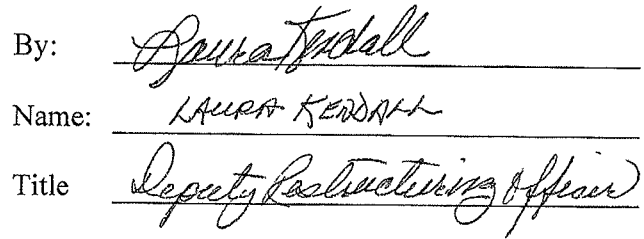 By: Laura Kendall
Name: LAURA KENDALL
Title Deputy Restructuring Officer